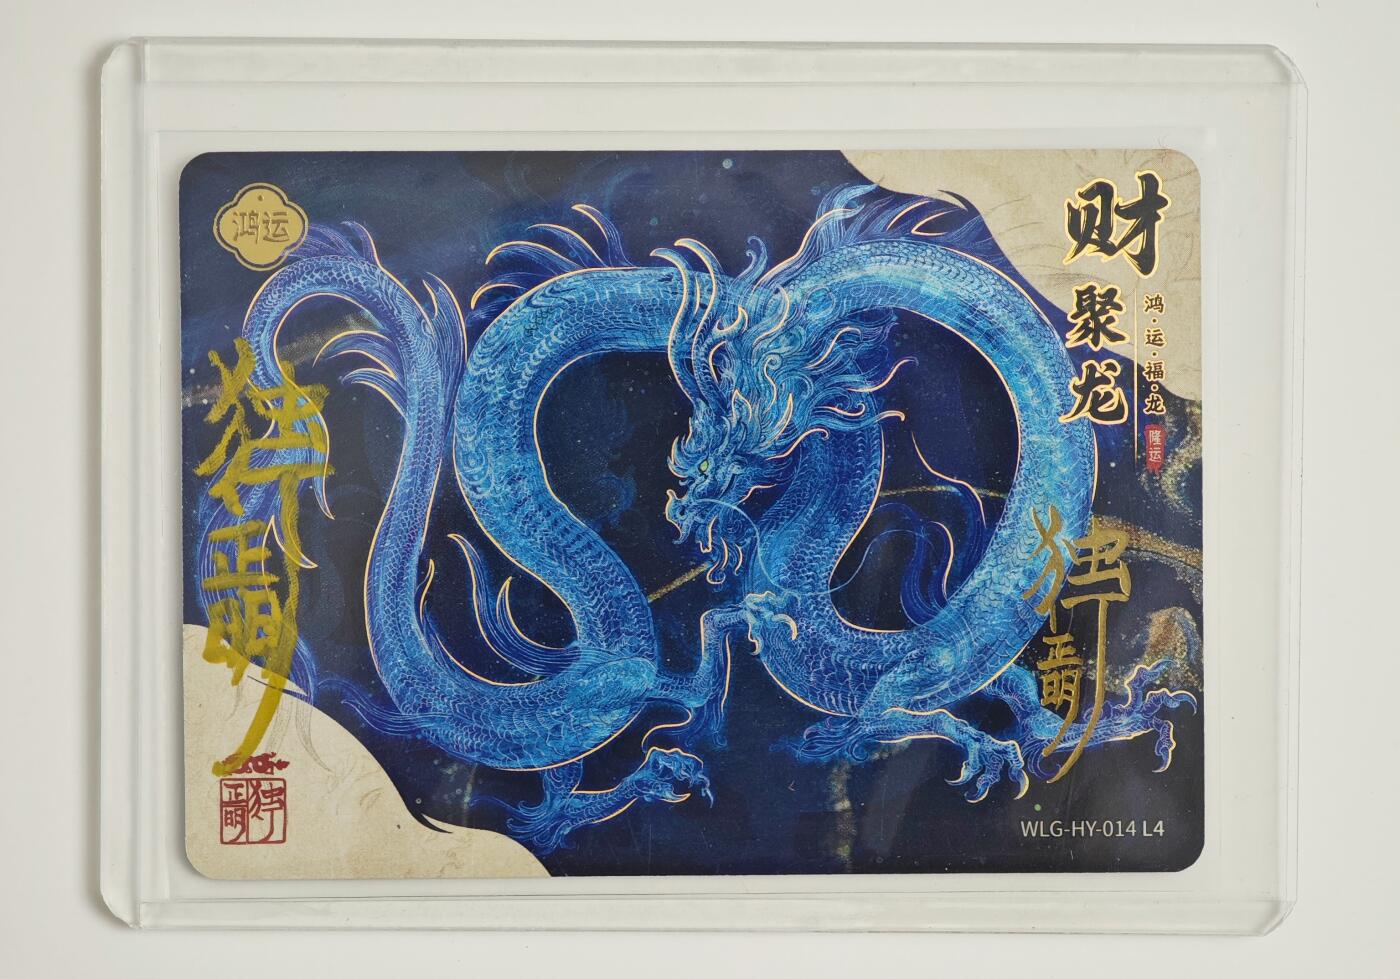 鸿运
财聚龙
鸿·运·福·龙
隆运
独行
正萌
独行
正萌
独行
正萌
WLG-HY-014 L4